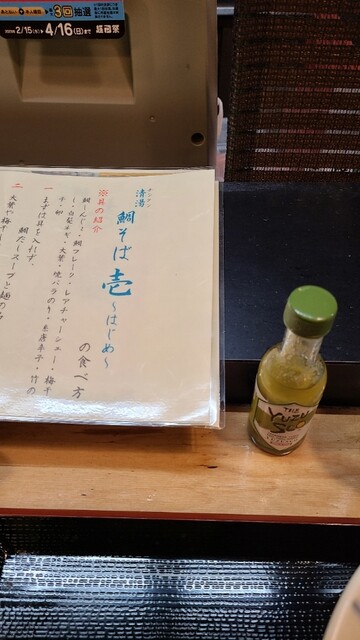 3回抽選
2/15(水)▶4/16(日)まで
チンタン
清湯
鯛そば 壱 〜はじめ〜
の食べ方
※具の紹介
鯛しんじょ・鯛フレーク・レアチャーシュー・梅干
し・白髪ネギ・大葉・焼バラのり・糸唐辛子・竹の
子・卵
一 まずは具を入れず、
鯛だしスープと麺のみ
二 大葉や梅干し
THE
YUZU
SCO